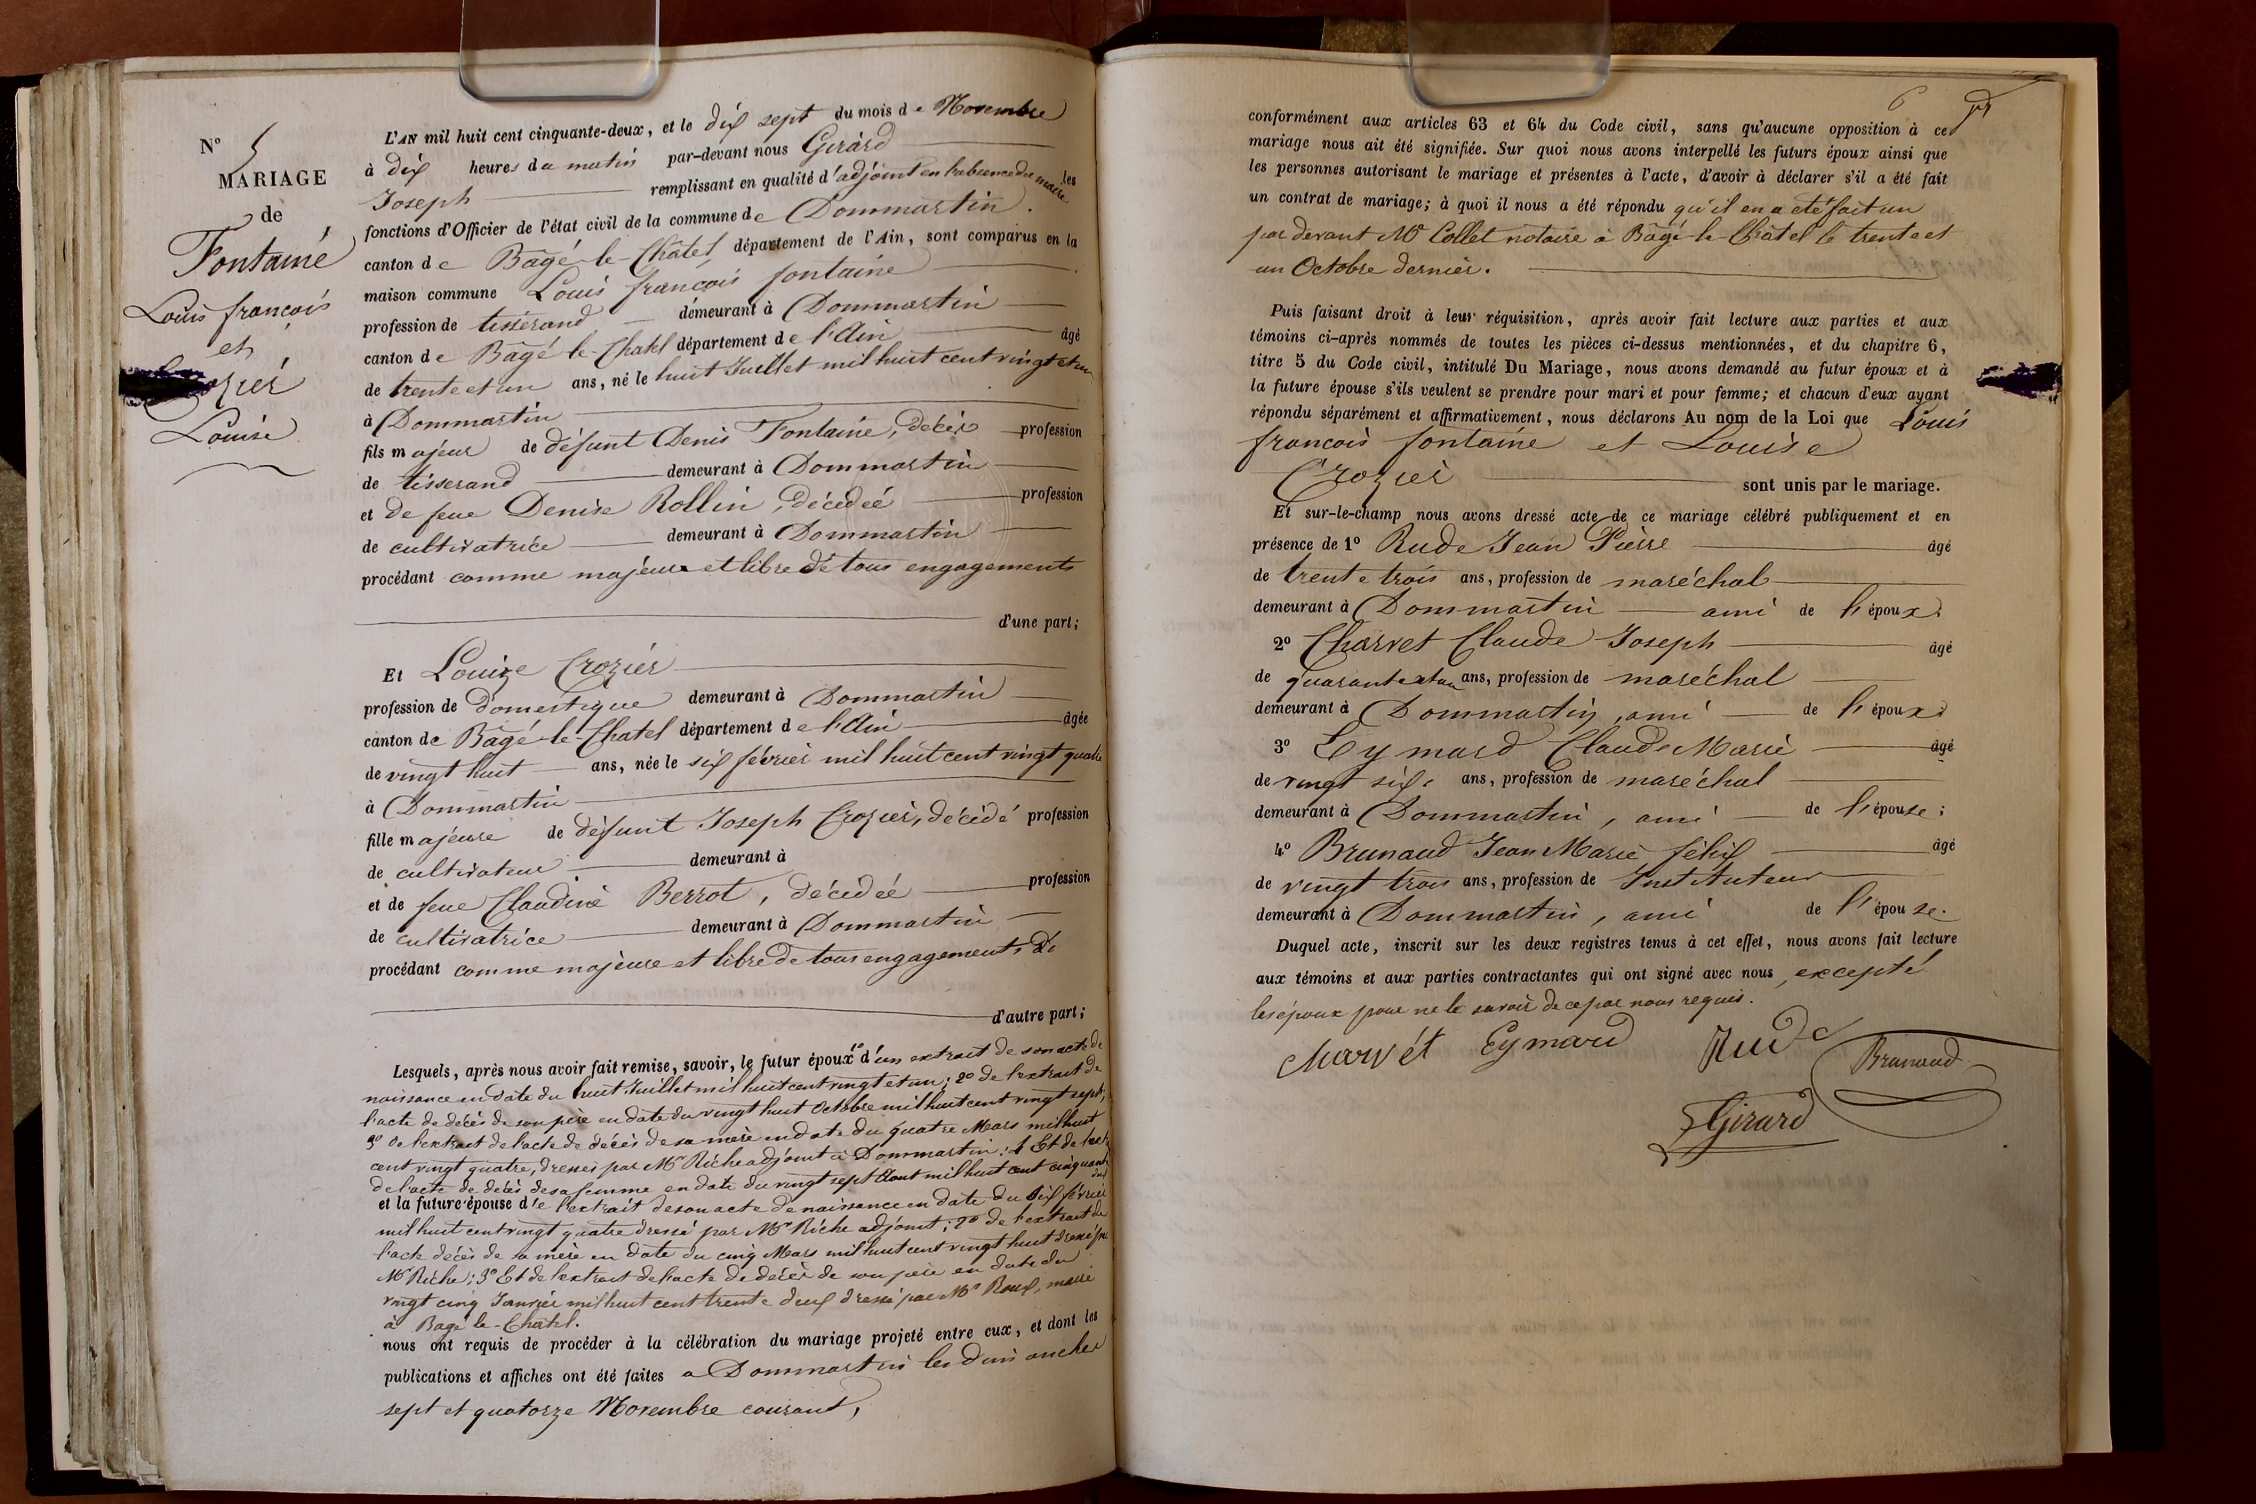 N° 5
MARIAGE
de
Fontaine
Louis françois
et
Crozier
Louise
L'AN mil huit cent cinquante-deux, et le dix sept du mois de Novembre
à dix heures du matin par-devant nous Girard
Joseph remplissant en qualité d'adjoint en l'absence du maire les
fonctions d'Officier de l'état civil de la commune de Dommartin.
canton de Bagé-le-Châtel département de l'Ain, sont comparus en la
maison commune Louis françois fontaine
profession de tisserand demeurant à Dommartin
canton de Bâgé-le-Chatel département de l'Ain âgé
de trente et un ans, né le huit Juillet mil huit cent vingt et un
à Dommartin
fils majeur de défunt Denis Fontaine, décés profession
de tisserand demeurant à Dommartin
et de feue Denise Rollin, décédeé profession
de cultivatrice demeurant à Dommartin
procédant comme majeur et libre de tous engagements
d'une part;
Et Louize Crozier
profession de domestique demeurant à Dommartin
canton de Bâgé-le-Chatel département de l'Ain âgée
de vingt huit ans, née le six février mil huit cent vingt quatre
à Dommartin
fille majeure de défunt Joseph Crozier, décédé profession
de cultivateur demeurant à
et de feue Claudine Berrot, décédeé profession
de cultivatrice demeurant à Dommartin
procédant comme majeure et libre de tous engagements
d'autre part;
Lesquels, après nous avoir fait remise, savoir, le futur époux 1° d'un extrait de son acte de
naissance en date du huit Juillet mil huit cent vingt et un; 2° de l'extrait de
l'acte de décès de son père en date du vingt huit Octobre mil huit cent vingt sept;
3° de l'extrait de l'acte de décès de sa mère en date du quatre Mars mil huit
cent vingt quatre, dressés par Mr Riche adjoint à Dommartin; 4 Et de
de l'acte de décès de sa femme en date du vingt sept Aout mil huit cent cinquante
et la future épouse de l'extrait de son acte de naissance en date du six février
mil huit cent vingt quatre dressé par Mr Riche adjoint; 2° de l'extrait de
l'acte décès de sa mère en date du cinq Mars mil huit cent vingt huit dressé par
Mr Riche; 3° Et de l'extrait de l'acte de décès de son père en date du
vingt cinq Janvier mil huit cent trente deux dressé par Mr Roux, maire
à Bagé-le-Chatel.
nous ont requis de procéder à la célébration du mariage projeté entre eux, et dont les
publications et affiches ont été faites a Dommartin les dimanches
sept et quatorze Novembre courant,
6
conformément aux articles 63 et 64 du Code civil, sans qu'aucune opposition à ce
mariage nous ait été signifiée. Sur quoi nous avons interpellé les futurs époux ainsi que
les personnes autorisant le mariage et présentes à l'acte, d'avoir à déclarer s'il a été fait
un contrat de mariage; à quoi il nous a été répondu qu'il en a été fait un
par devant Me Collet notaire à Bâgé-le-Châtel le trente et
un Octobre dernier.
Puis faisant droit à leur réquisition, après avoir fait lecture aux parties et aux
témoins ci-après nommés de toutes les pièces ci-dessus mentionnées, et du chapitre 6,
titre 5 du Code civil, intitulé Du Mariage, nous avons demandé au futur époux et à
la future épouse s'ils veulent se prendre pour mari et pour femme; et chacun d'eux ayant
répondu séparément et affirmativement, nous déclarons Au nom de la Loi que Louis
françois fontaine et Louise
Crozier sont unis par le mariage.
Et sur-le-champ nous avons dressé acte de ce mariage célébré publiquement et en
présence de 1° Rude Jean Pierre âgé
de trente trois ans, profession de maréchal
demeurant à Dommartin ami de l'époux.
2° Charvet Claude Joseph âgé
de quarante et un ans, profession de maréchal
demeurant à Dommartin, ami de l'époux
3° Eymard Claude Marie âgé
de vingt six ans, profession de maréchal
demeurant à Dommartin, ami de l'épouse;
4° Brunaud Jean Marie félix âgé
de vingt trois ans, profession de Instituteur
demeurant à Dommartin, ami de l'épouse.
Duquel acte, inscrit sur les deux registres tenus à cet effet, nous avons fait lecture
aux témoins et aux parties contractantes qui ont signé avec nous, excepté
les époux pour ne le savoir de ce par nous requis.
Charvét Eymard Rude Brunaud
Girard